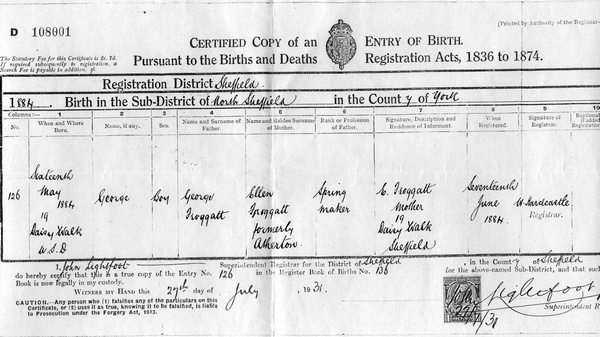 D 108001
(Printed by Authority of the Registrar-
CERTIFIED COPY of an ENTRY OF BIRTH.
Pursuant to the Births and Deaths Registration Acts, 1836 to 1874.
The Statutory Fee for this Certificate is 2s. 7d.
If required subsequently to registration, a
Search Fee is payable in addition.
Registration District Sheffield
1884. Birth in the Sub-District of North Sheffield in the County of York
Columns:— 1 2 3 4 5 6 7 8 9 10
No. When and Where Born. Name, if any. Sex. Name and Surname of Father. Name and Maiden Surname of Mother. Rank or Profession of Father. Signature, Description and Residence of Informant. When Registered. Signature of Registrar. Baptismal
126 Sixteenth May 1884 19 Daisy Walk W.S.D George Boy George Froggatt Ellen Froggatt formerly Atherton Spring maker E. Froggatt Mother 19 Daisy Walk Sheffield Seventeenth June 1884 W. Hardcastle Registrar.
I, John Lightfoot Superintendent Registrar for the District of Sheffield, in the County of Sheffield
do hereby certify that this is a true copy of the Entry No. 126 in the Register Book of Births No. 136 for the above-named Sub-District, and that such
Book is now legally in my custody.
WITNESS MY HAND this 27th day of July, 1931.
CAUTION.—Any person who (1) falsifies any of the particulars on this
Certificate, or (2) uses it as true, knowing it to be falsified, is liable
to Prosecution under the Forgery Act, 1913.
Superintendent R